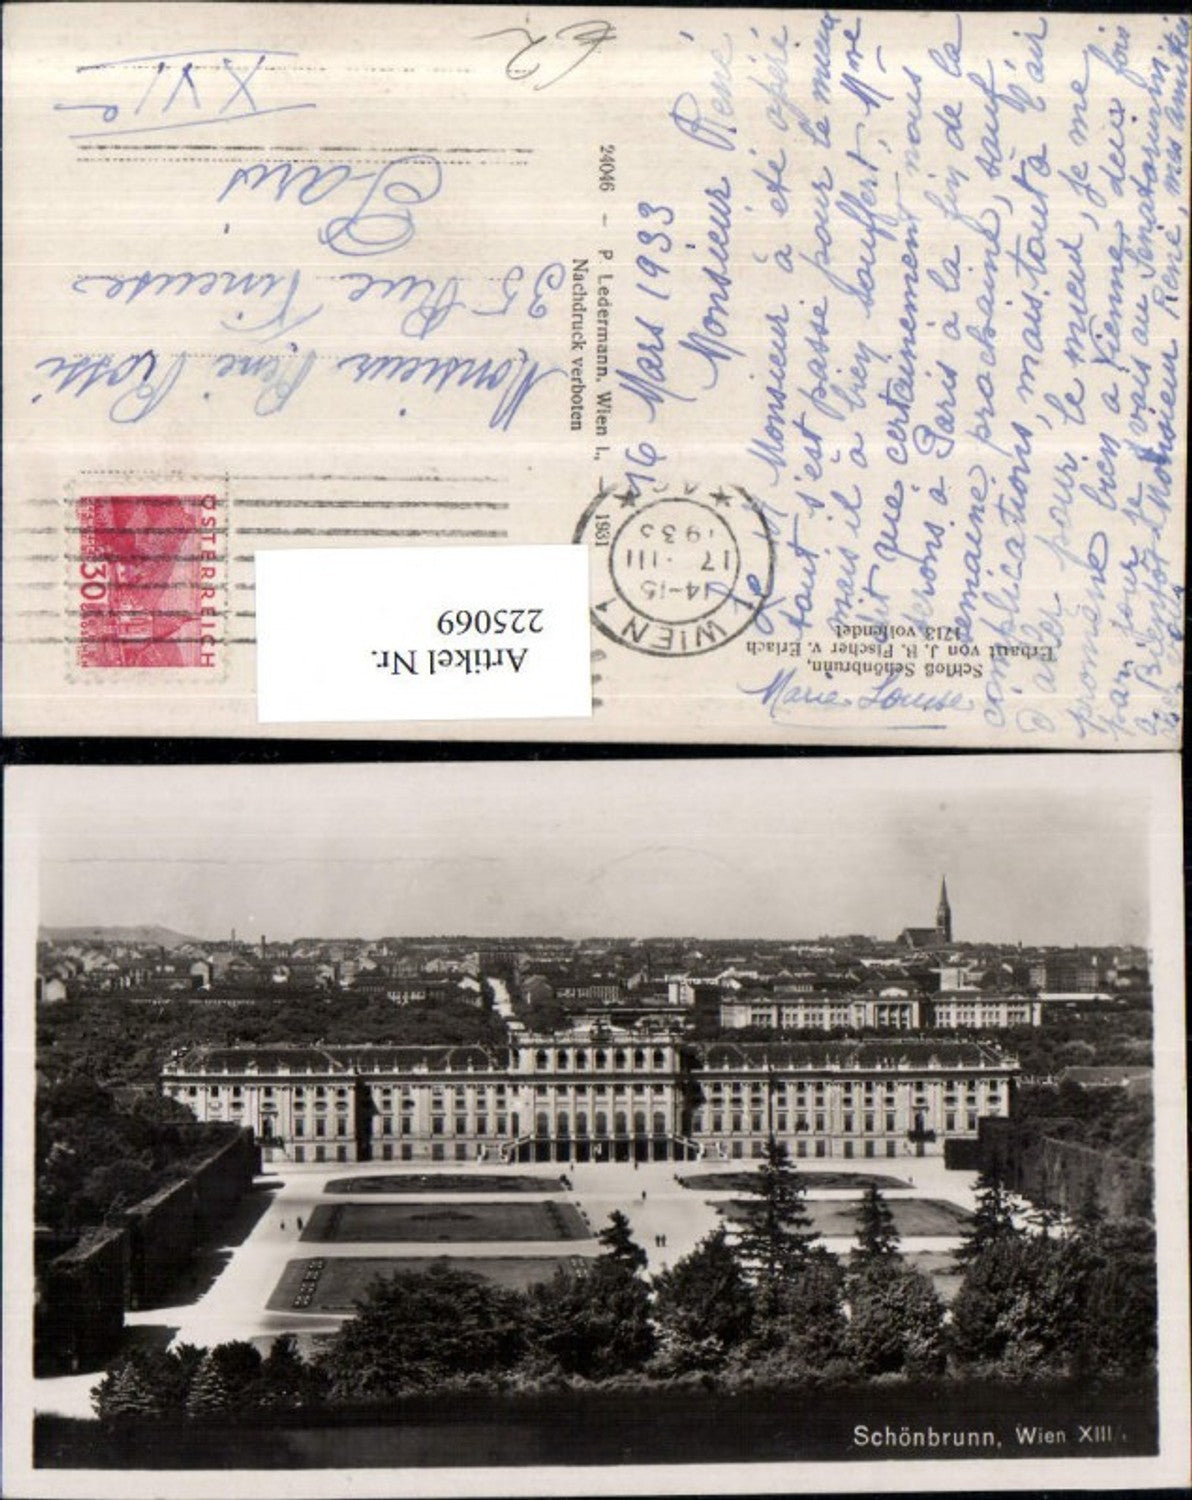 16 Mars 1933
Monsieur René
Le 14 Monsieur à été opéré
tout s'est passé pour le mieux
mais il a bien souffert, Mme
dit que certainement nous
serons à Paris à la fin de la
semaine prochaine, sauf
complications, mais tout à l'air
d'aller pour le mieux, je me
promène bien à Vienne, deux fois
par jour je vais au Senatorium
à Bientôt Monsieur René, mes amitiés
Marie-Louise
Schloß Schönbrunn,
Erbaut von J. B. Fischer v. Erlach
1713 vollendet
24046 – P. Ledermann, Wien I., 1931
Nachdruck verboten
WIEN 1
14-15
17·III
1933
ÖSTERREICH
30
Monsieur René Rossi
35 Rue Vineuse
Paris
XVIe
Artikel Nr.
225069
Schönbrunn, Wien XIII.